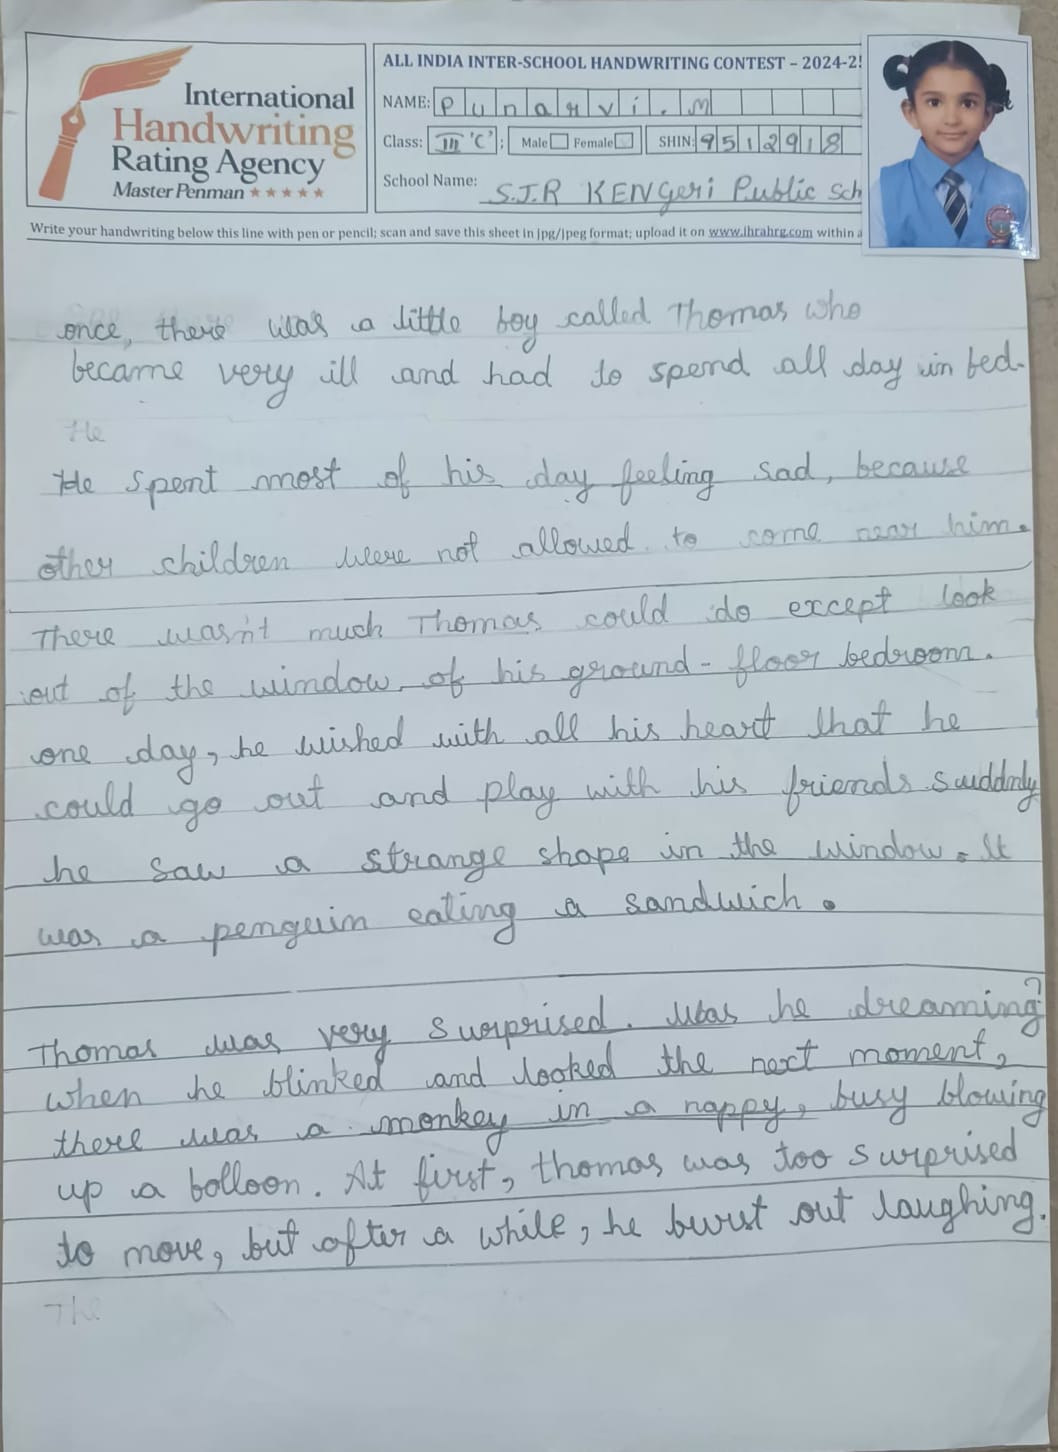 International
Handwriting
Rating Agency
Master Penman ★★★★★
ALL INDIA INTER-SCHOOL HANDWRITING CONTEST – 2024-2
NAME: Punarvi.M
Class: III 'C' ; Male Female SHIN: 9512918
School Name: S.J.R KENgeri Public Sch
Write your handwriting below this line with pen or pencil; scan and save this sheet in jpg/jpeg format; upload it on www.ihrahrg.com within
once, there was a little boy called Thomas who
became very ill and had to spend all day in bed.
He
He spent most of his day feeling sad, because
other children were not allowed to come near him.
There wasn't much Thomas could do except look
out of the window of his ground-floor bedroom.
one day, he wished with all his heart that he
could go out and play with his friends. suddnly
he saw a strange shape in the window. It
was a penguin eating a sandwich.
Thomas was very surprised. Was he dreaming?
when he blinked and looked the next moment,
there was a monkey in a nappy, busy blowing
up a balloon. At first, thomas was too surprised
to move, but after a while, he burst out laughing.
The